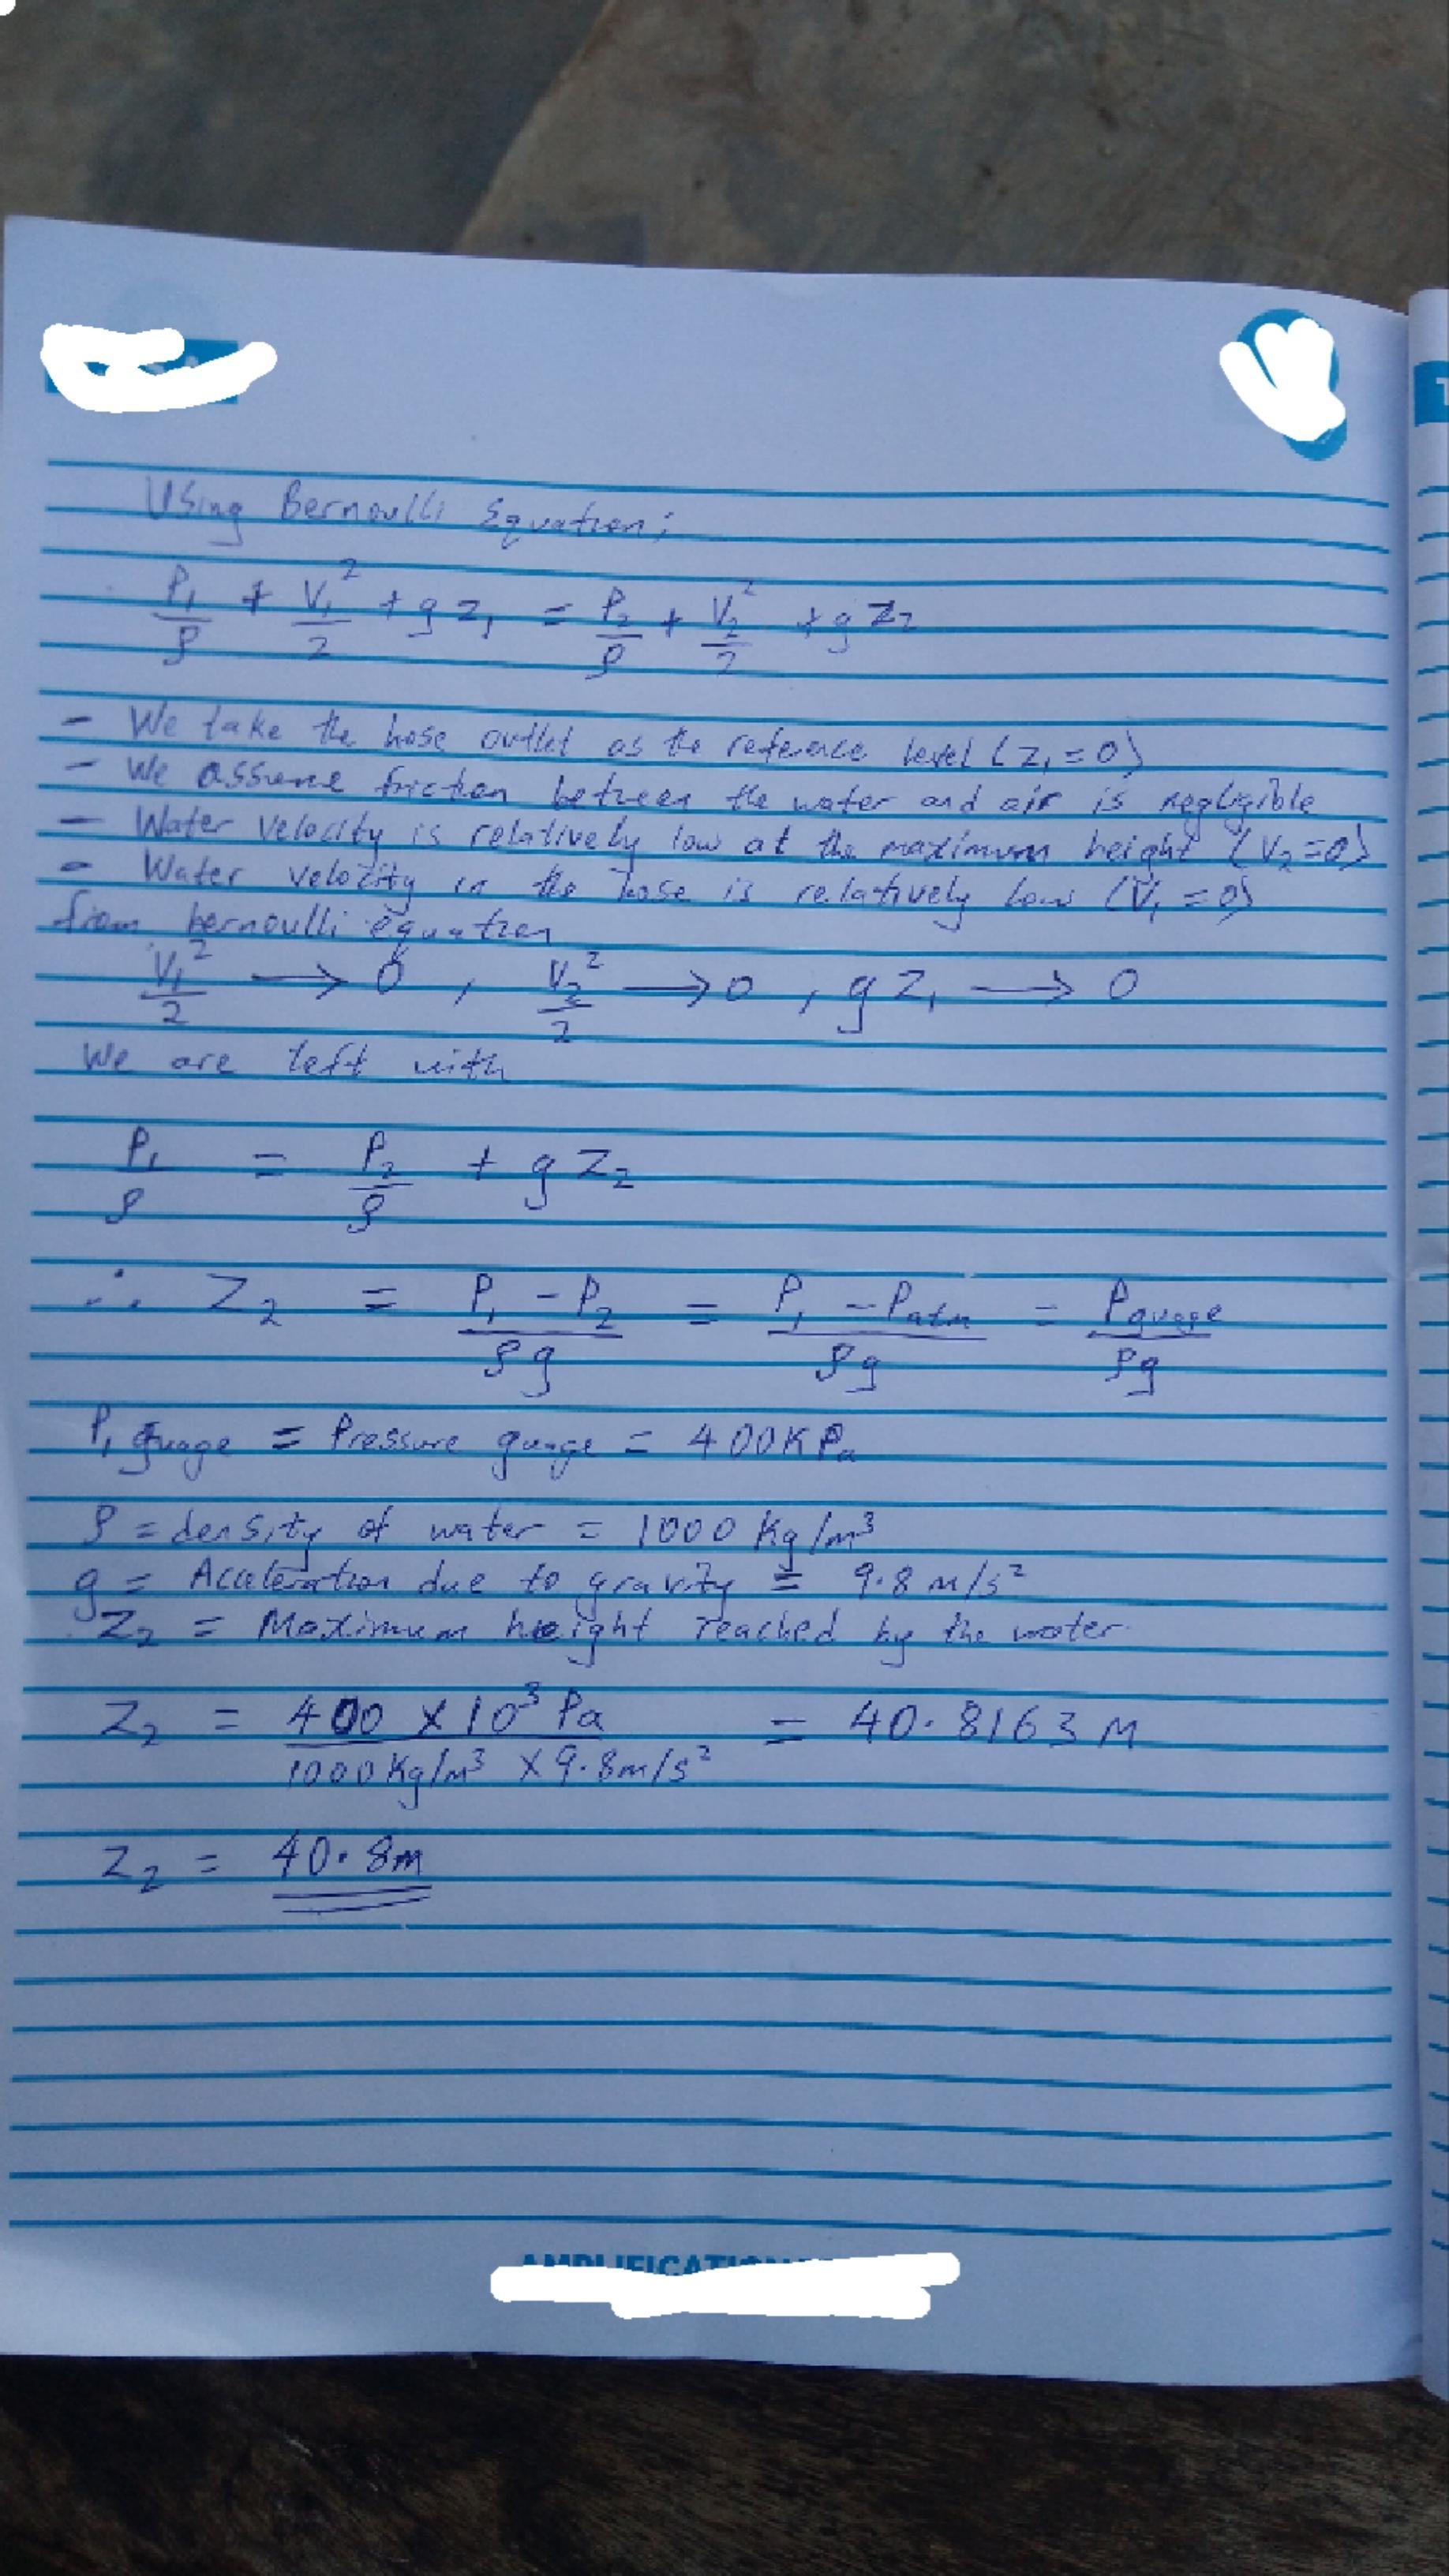 Using Bernoulli Equation;
P₁/ρ + V₁²/2 + g z₁ = P₂/ρ + V₂²/2 + g Z₂
- We take the hose outlet as the reference level (Z₁ = 0)
- We assume friction between the water and air is negligible
- Water velocity is relatively low at the maximum height (V₂ = 0)
- Water velozity in the hose is relatively low (V₁ = 0)
from bernoulli equation
V₁²/2 → 0 , V₂²/2 → 0 , g Z₁ → 0
We are left with
P₁/ρ = P₂/ρ + g Z₂
∴ Z₂ = (P₁ - P₂)/ρg = (P₁ - Patm)/ρg = Pguage/ρg
P₁ guage = Pressure guage = 400KPa
ρ = density of water = 1000 Kg/m³
g = Acceleration due to gravity = 9.8 m/s²
Z₂ = Maximum height reached by the water.
Z₂ = 400 × 10³ Pa / 1000 Kg/m³ × 9.8m/s² = 40.8163 M
Z₂ = 40.8m